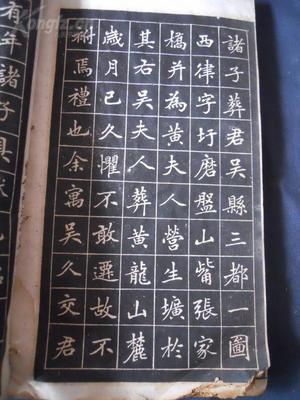 諸子葬君吳縣三都一圖
西律字圩磨盤山觜張家
橋并為黃夫人營生壙於
其右吳夫人葬黃龍山麓
歲月已久懼不敢遷故不
祔焉禮也余寓吳久交君
有年諸子具